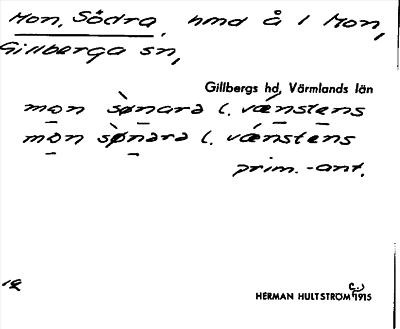 Mon, Södra, hmd å 1 Mon,
Gillberga sn,
Gillbergs hd, Värmlands län
mon sønara l. vénstens
mon sønara l. vénstens
prim.-ant.
HERMAN HULTSTRÖM 1915